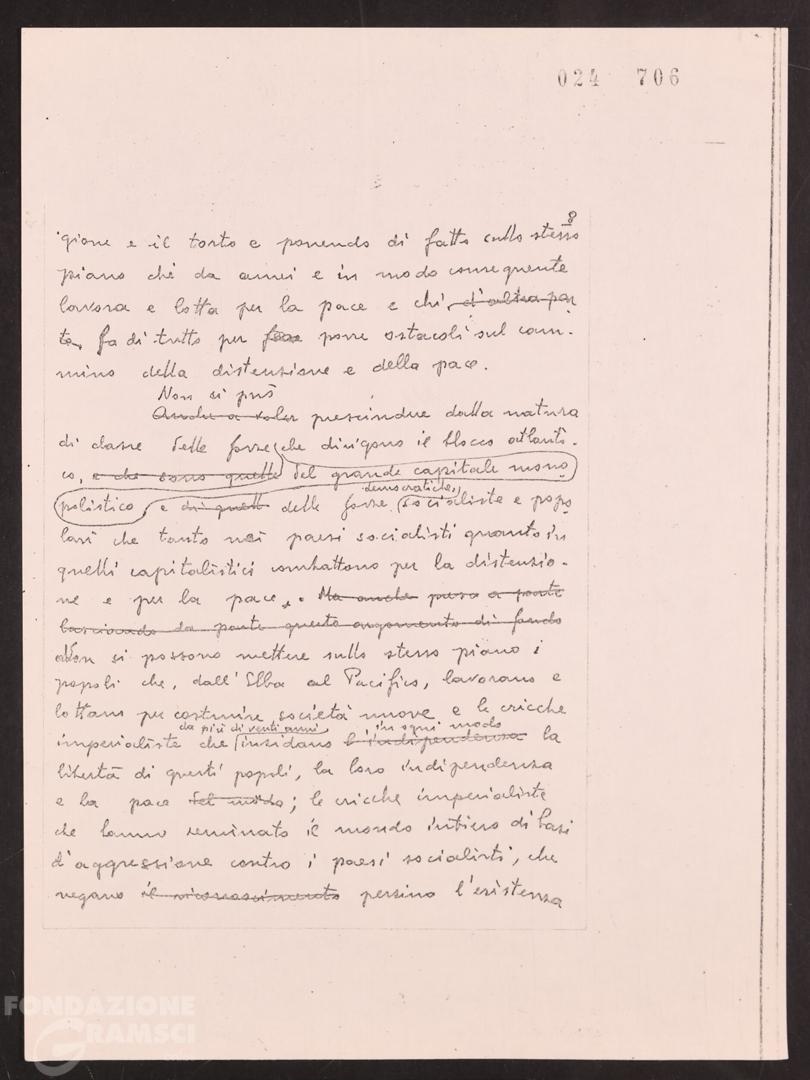 024 706
8
gione e il torto e ponendo di fatto sullo stesso
piano chi da anni e in modo conseguente
lavora e lotta per la pace e chi, d'altra par
te, fa di tutto per porre ostacoli sul cam-
mino della distensione e della pace.
Non si può
Anche a voler prescindere dalla natura
di classe delle forze che dirigono il blocco atlanti-
co, e che sono quelle del grande capitale mono
polistico, e di quell delle forze socialiste e popo
democratiche,
lari che tanto nei paesi socialisti quanto in
quelli capitalistici combattono per la distensio-
ne e per la pace. Ma anche a parte
lasciando da parte questo argomento di fondo
Non si possono mettere sullo stesso piano i
popoli che, dall'Elba al Pacifico, lavorano e
lottano per costruire società nuove e le cricche
da più di venti anni in ogni modo
imperialiste che insidiano l'indipendenza la
libertà di questi popoli, la loro indipendenza
e la pace del mondo; le cricche imperialiste
che hanno seminato il mondo intiero di basi
d'aggressione contro i paesi socialisti, che
negano il riconoscimento persino l'esistenza
FONDAZIONE
GRAMSCI